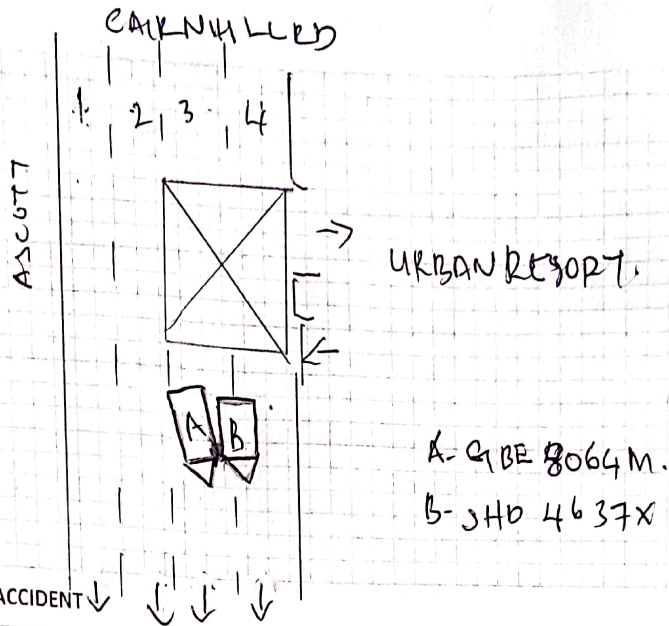 CAIRNHILL RD
1 2 3 4
ASCOTT
URBAN RESORT.
A B
A- GBE 8064M.
B- SHD 4637X
ACCIDENT